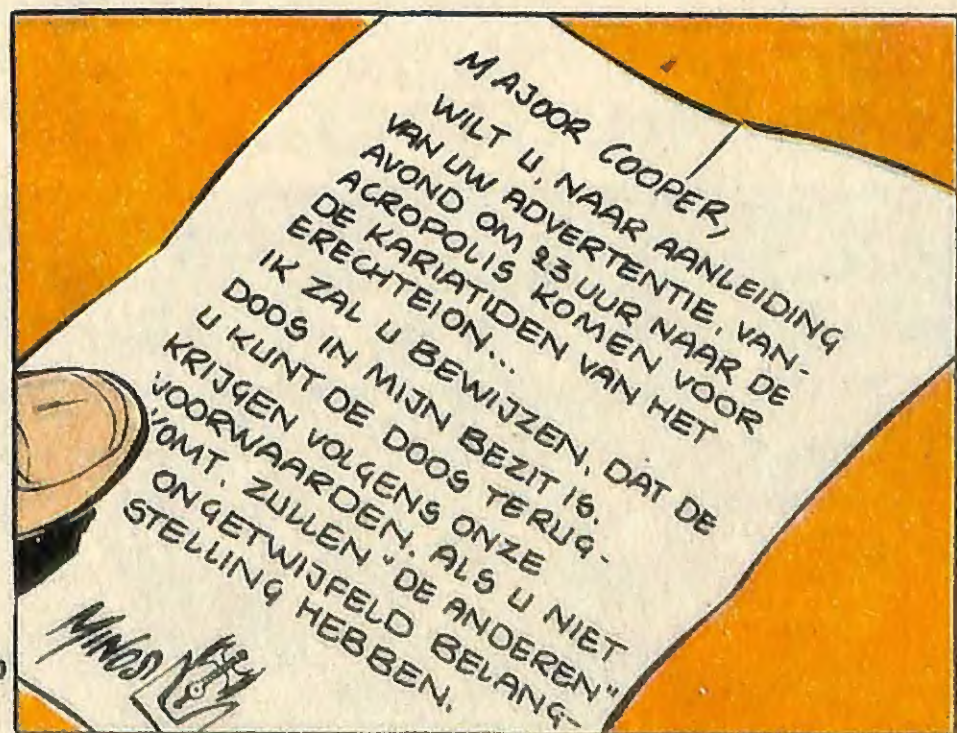 MAJOOR COOPER,
WILT U, NAAR AANLEIDING
VAN UW ADVERTENTIE, VAN-
AVOND OM 23 UUR NAAR DE
ACROPOLIS KOMEN VOOR
DE KARIATIDEN VAN HET
ERECHTEION...
IK ZAL U BEWIJZEN, DAT DE
DOOS IN MIJN BEZIT IS.
U KUNT DE DOOS TERUG-
KRIJGEN VOLGENS ONZE
VOORWAARDEN. ALS U NIET
KOMT, ZULLEN "DE ANDEREN"
ONGETWIJFELD BELANG-
STELLING HEBBEN.
MINOS